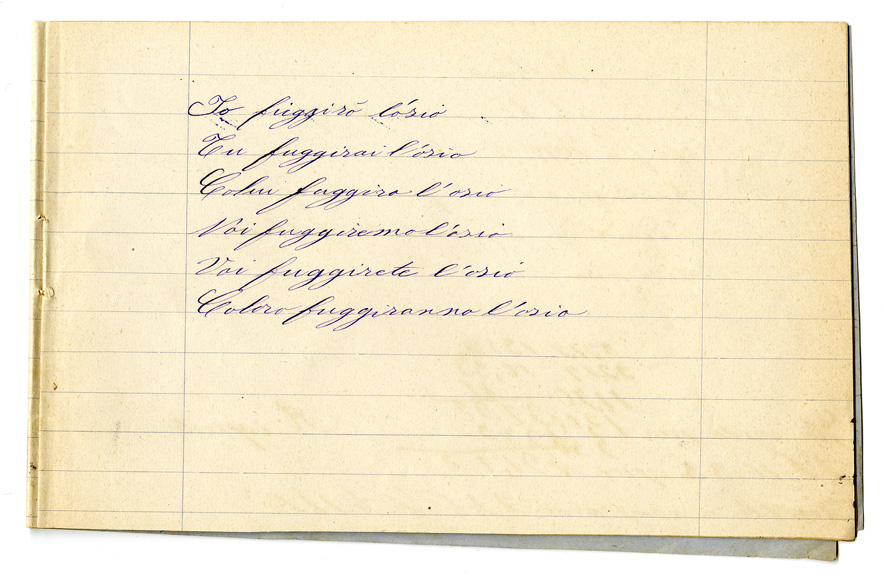 Io fuggirò l'osio
Tu fuggirai l'osio
Colui fuggira l'osio
Noi fuggiremo l'osio
Voi fuggirete l'osio
Coloro fuggiranno l'osio